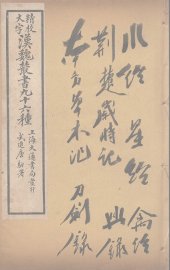 精校
大字
漢魏叢書九十六種
上海大通書局發行
武進唐駝署
水經 星經
荊楚歲時記
南方草木狀
禽經
刀劍錄